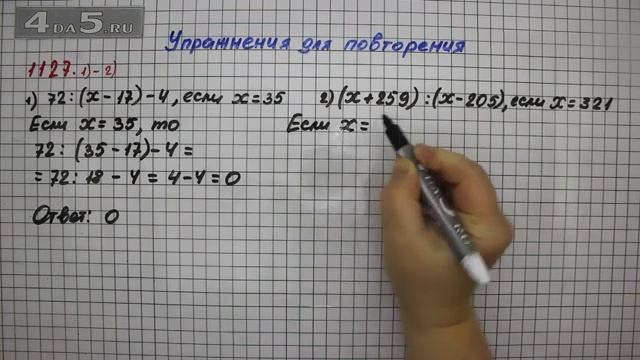 4DA5.RU
Упражнения для повторения
1127. 1)-2)
1) 72:(x-17)-4, если x=35
Если x=35, то
72:(35-17)-4=
=72:18-4=4-4=0
Ответ: 0
2) (x+259):(x-205), если x=321
Если x=